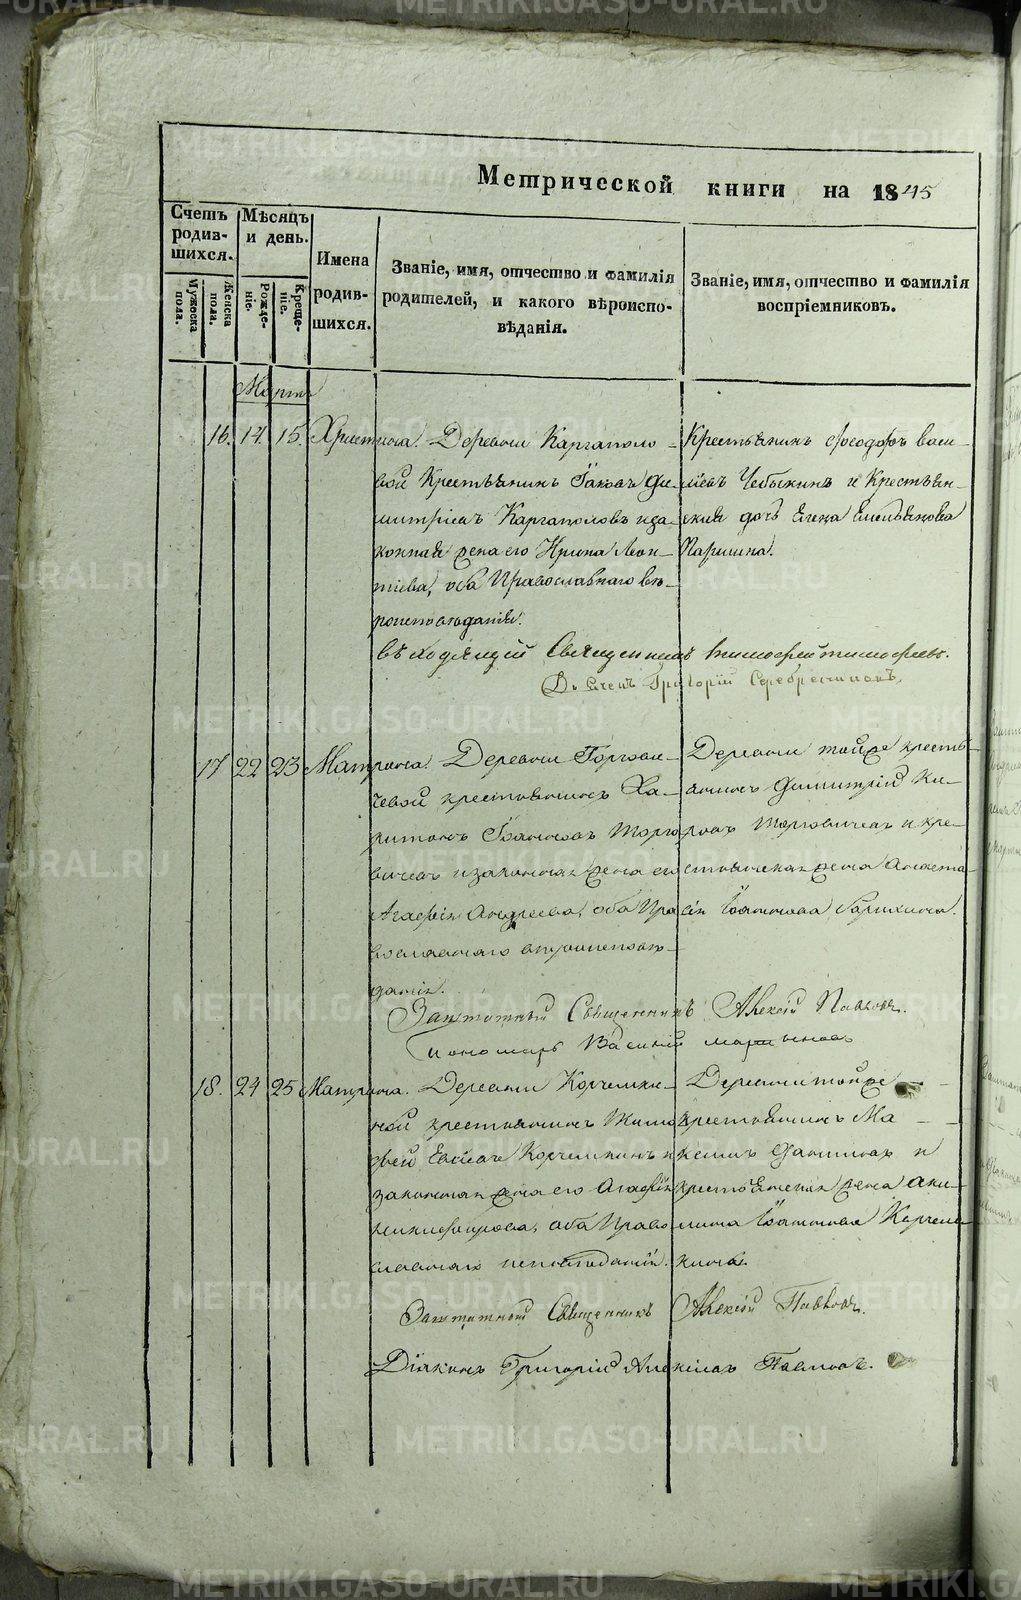 Метрической книги на 1845
Счетъ родившихся.
Мужеска пола.
Женска пола.
Мѣсяцъ и день.
Рожденіе.
Крещеніе.
Имена родившихся.
Званіе, имя, отчество и фамилія родителей, и какого вѣроисповѣданія.
Званіе, имя, отчество и фамилія воспріемниковъ.
Мартъ
16. 14. 15. Христина. Деревни Каргаполо-
вой Крестьянинъ Іаковъ Ди-
митріевъ Каргаполовъ и за-
конная жена его Ирина Леон-
тіева, оба Православнаго вѣ-
роисповѣданія.
Крестьянинъ Ѳеодоръ Васи-
ліевъ Чебыкинъ и Крестьян-
ская дочь Елена Емельянова
Паршина.
Священникъ Тимофей
Дьяченъ Григорій Серебренниковъ
17 22 23 Матрона. Деревни
чевой крестьянинъ Ха-
ритонъ Іоанновъ Торго-
вичевъ и законная жена его
Агафія Андреева, оба Пра-
вославнаго вѣроисповѣ-
данія.
Деревни тойже кресть-
янинъ Димитрій Ки-
ровъ Торговичевъ и кре-
стьянская жена Анаста-
сія Іоаннова
Заштатный Священникъ Алексій Павловъ.
Пономарь Василій
18. 24 25 Матрона. Деревни Корчемки-
ной крестьянинъ Тимо-
фей Корчемкинъ и
законная жена его Агафія
Никифорова, оба Право-
славнаго исповѣданія.
Деревни тойже
крестьянинъ Ма-
и
крестьянская жена Аки-
лина Іоаннова Корчем-
кина.
Заштатный Священникъ Алексій Павловъ.
Діаконъ Григорій Алексіевъ Павловъ.
METRIKI.GASO-URAL.RU